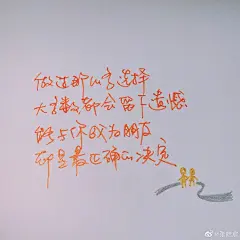 做过那么多选择
大多数都会留下遗憾
能与你成为朋友
却是最正确的决定